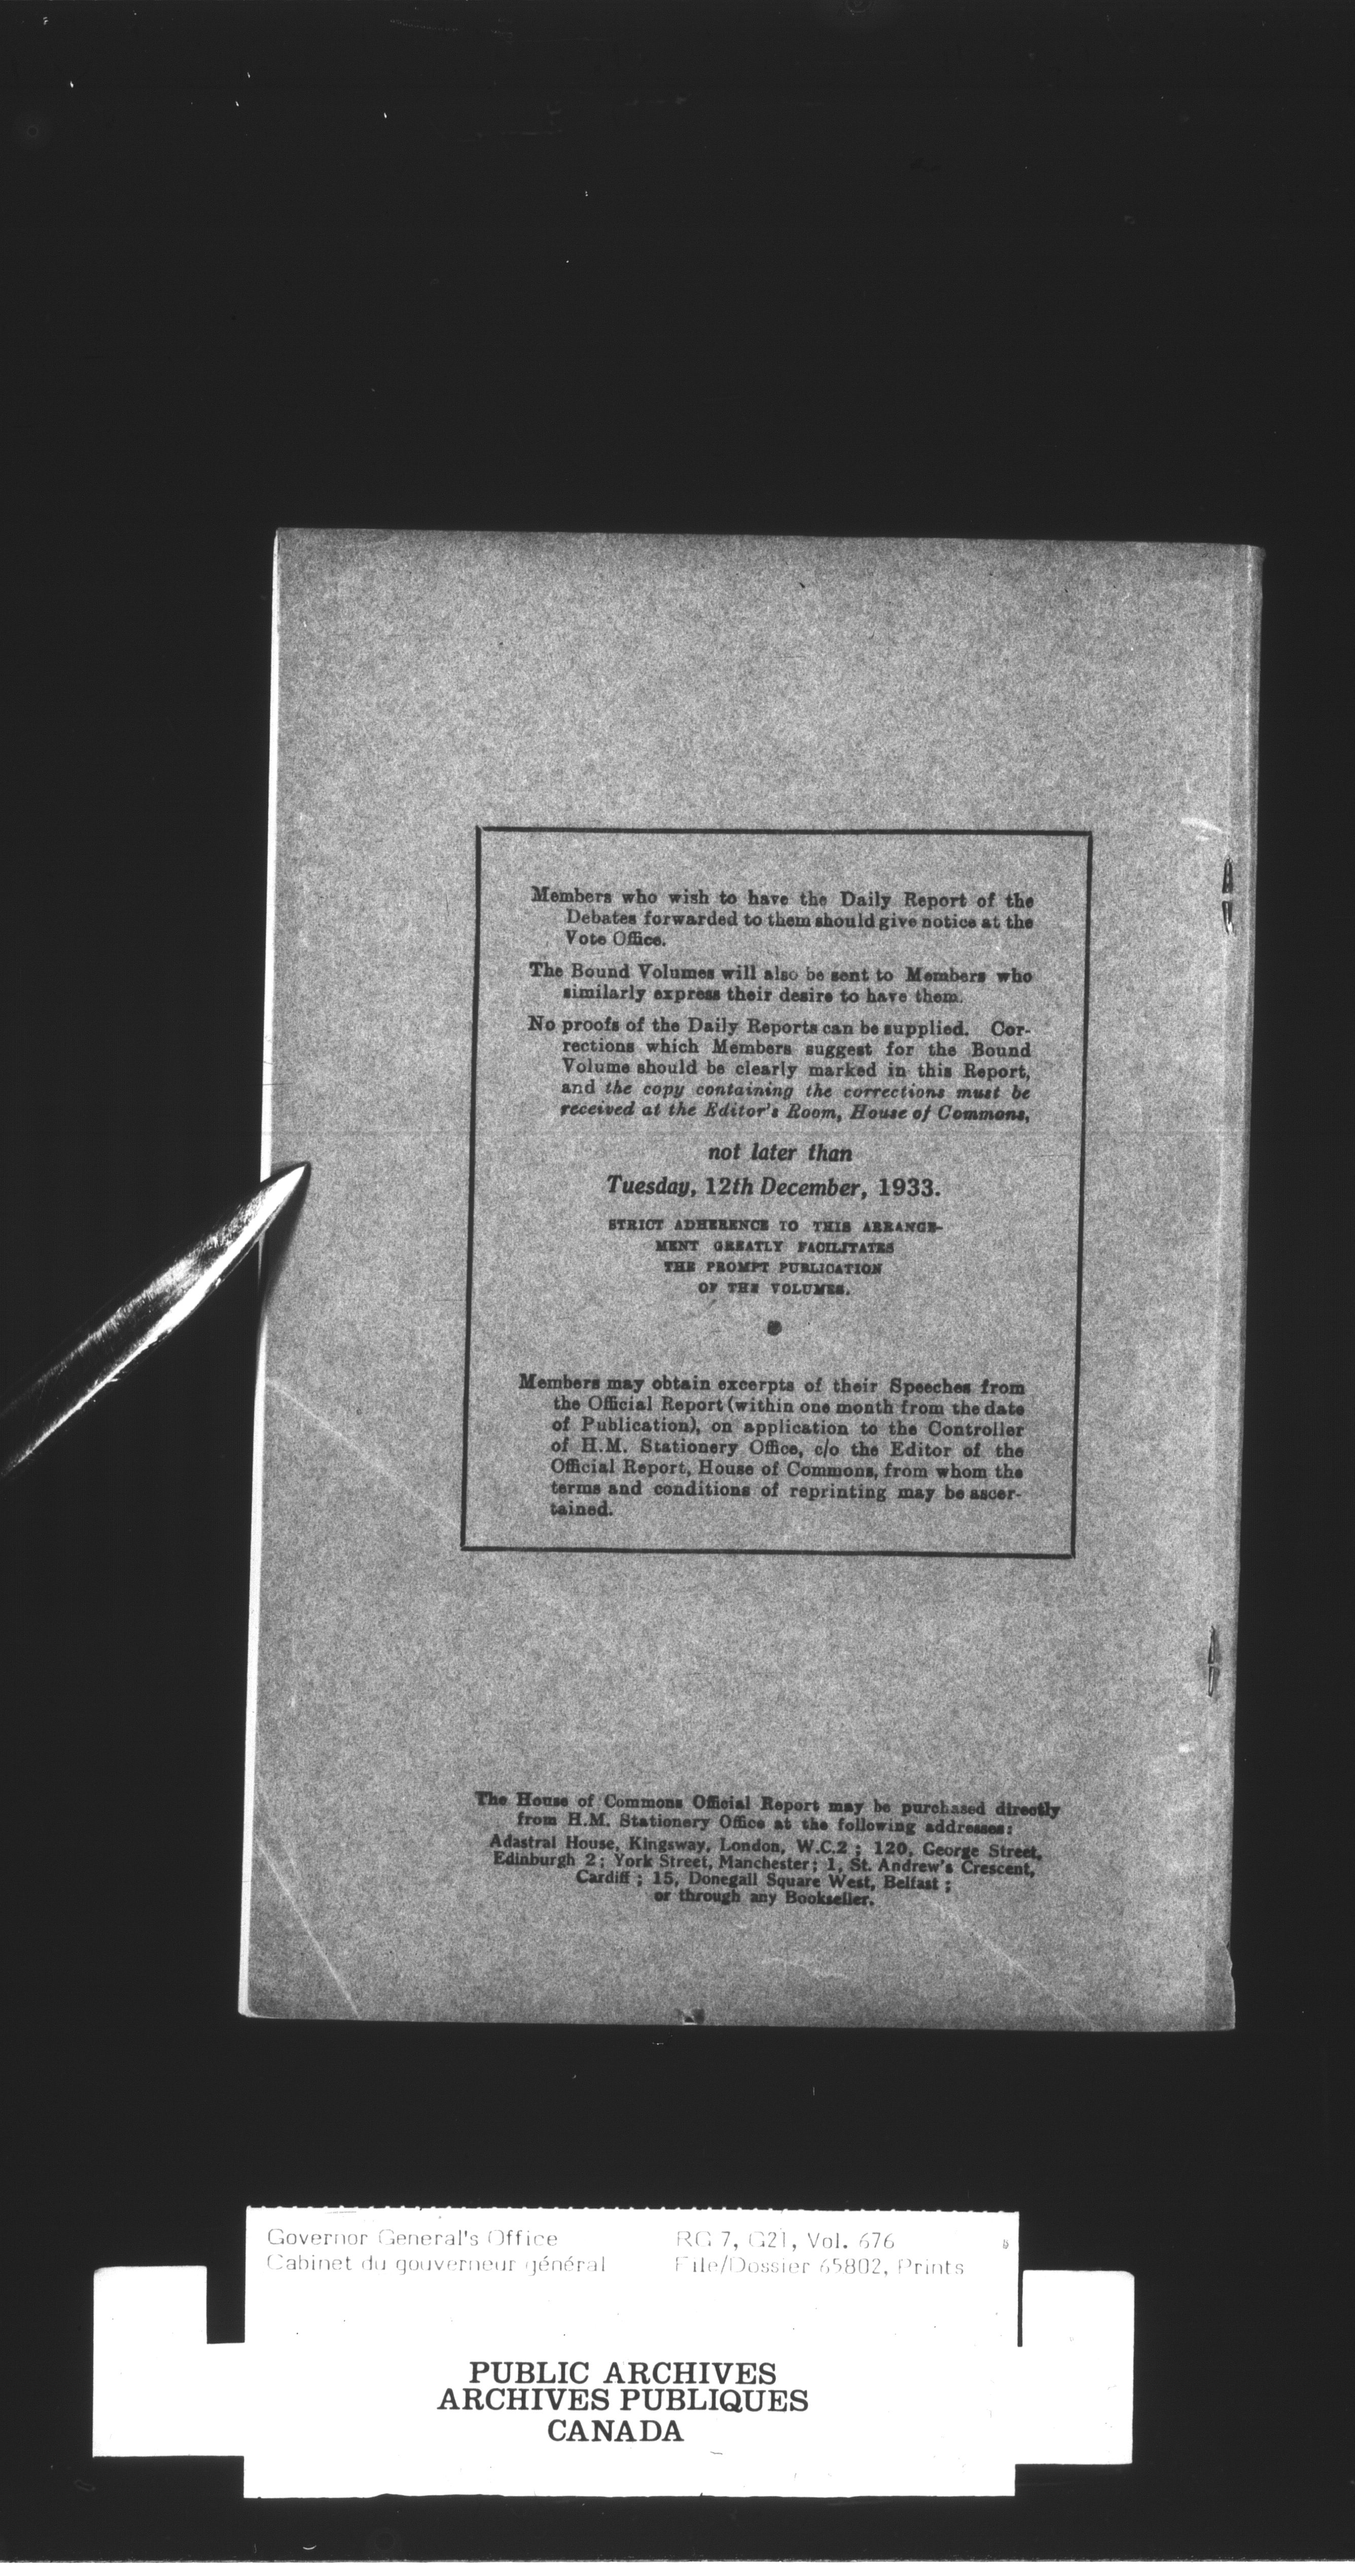 Members who wish to have the Daily Report of the
Debates forwarded to them should give notice at the
Vote Office.
The Bound Volumes will also be sent to Members who
similarly express their desire to have them.
No proofs of the Daily Reports can be supplied. Cor-
rections which Members suggest for the Bound
Volume should be clearly marked in this Report,
and the copy containing the corrections must be
received at the Editor's Room, House of Commons,
not later than
Tuesday, 12th December, 1933.
STRICT ADHERENCE TO THIS ARRANGE-
MENT GREATLY FACILITATES
THE PROMPT PUBLICATION
OF THE VOLUMES.
Members may obtain excerpts of their Speeches from
the Official Report (within one month from the date
of Publication), on application to the Controller
of H.M. Stationery Office, c/o the Editor of the
Official Report, House of Commons, from whom the
terms and conditions of reprinting may be ascer-
tained.
The House of Commons Official Report may be purchased directly
from H.M. Stationery Office at the following addresses:
Adastral House, Kingsway, London, W.C.2 ; 120, George Street,
Edinburgh 2; York Street, Manchester; 1, St. Andrew's Crescent,
Cardiff ; 15, Donegall Square West, Belfast ;
or through any Bookseller.
Governor General's Office RG 7, G21, Vol. 676
Cabinet du gouverneur général File/Dossier 65802, Prints
PUBLIC ARCHIVES
ARCHIVES PUBLIQUES
CANADA